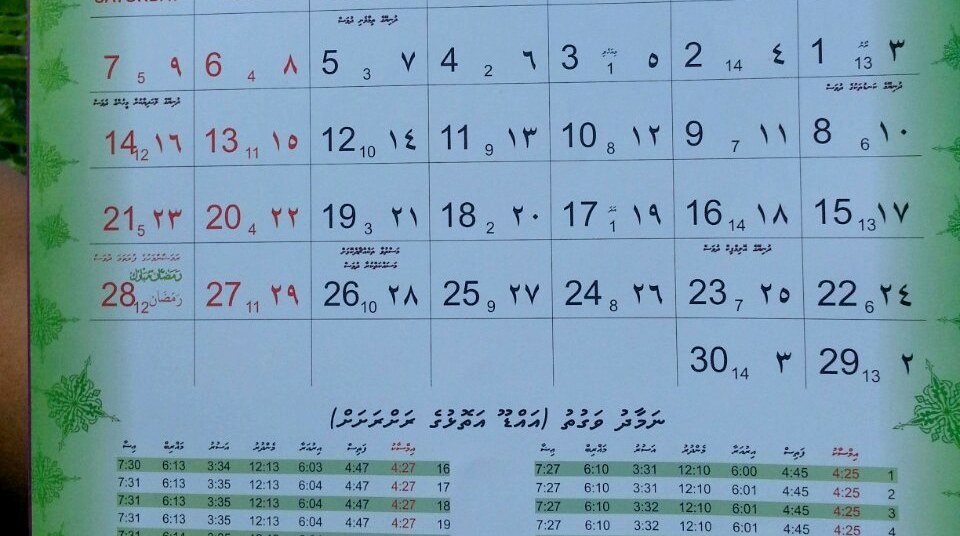 ދުނިޔޭގެ ތިމާވެށި ދުވަސް
٣ ރޯނު 13 1 ٤ 14 2 ٥ މިއަހެލި 1 3 ٦ 2 4 ٧ 3 5 ٨ 4 6 ٩ 5 7
ދުނިޔޭގެ ކަނޑުތަކުގެ ދުވަސް
ދުނިޔޭގެ ދުވަސް
١٠ 6 8 ١١ 7 9 ١٢ 8 10 ١٣ 9 11 ١٤ 10 12 ١٥ 11 13 ١٦ 12 14
١٧ 13 15 ١٨ 14 16 ١٩ 1 17 ٢٠ 2 18 ٢١ 3 19 ٢٢ 4 20 ٢٣ 5 21
ދުނިޔޭގެ އޮލިމްޕިކް ދުވަސް
މަސްތުވާ ތަކެއްޗާދެކޮޅަށް
މަސައްކަތްކުރާ ދުވަސް
ރަމަޟާންމަހުގެ ފުރަތަމަ ދުވަސް
رمضان مبارك
٢٤ 6 22 ٢٥ 7 23 ٢٦ 8 24 ٢٧ 9 25 ٢٨ 10 26 ٢٩ 11 27 رمضان 12 28
٢ 13 29 ٣ 14 30
ނަމާދު ވަގުތު (އައްޑޫ އަތޮޅުގެ ރަށްރަށަށް)
އިމްސާކު ފަތިސް އިރުއަރާ މެންދުރު އަސުރު މަޣްރިބް އިޝާ
1 4:25 4:45 6:00 12:10 3:31 6:10 7:27
2 4:25 4:45 6:01 12:10 3:31 6:10 7:27
3 4:25 4:45 6:01 12:10 3:32 6:10 7:27
4 4:25 4:45 6:01 12:10 3:32 6:10 7:27
އިމްސާކު ފަތިސް އިރުއަރާ މެންދުރު އަސުރު މަޣްރިބް އިޝާ
16 4:27 4:47 6:03 12:13 3:34 6:13 7:30
17 4:27 4:47 6:04 12:13 3:35 6:13 7:31
18 4:27 4:47 6:04 12:13 3:35 6:13 7:31
19 4:27 4:47 6:04 12:13 3:35 6:13 7:31